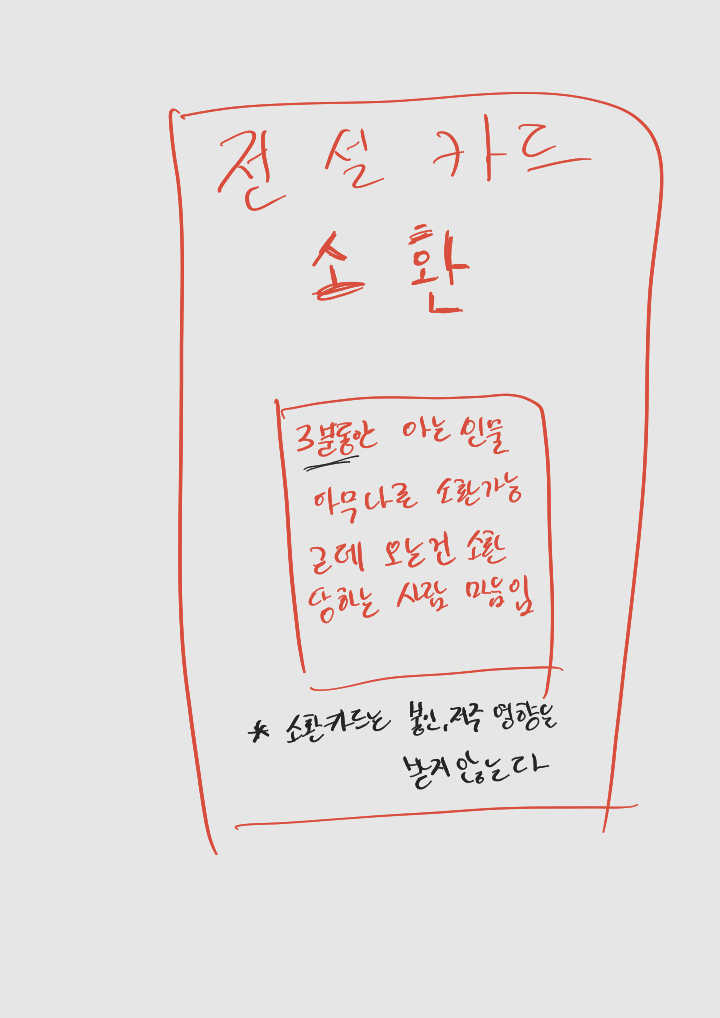 전설 카드
소환
3분동안 아는 인물
아무나를 소환가능
근데 오는건 소환
당하는 사람 마음임
* 소환카드는 봉인, 저주 영향을
받지 않는다